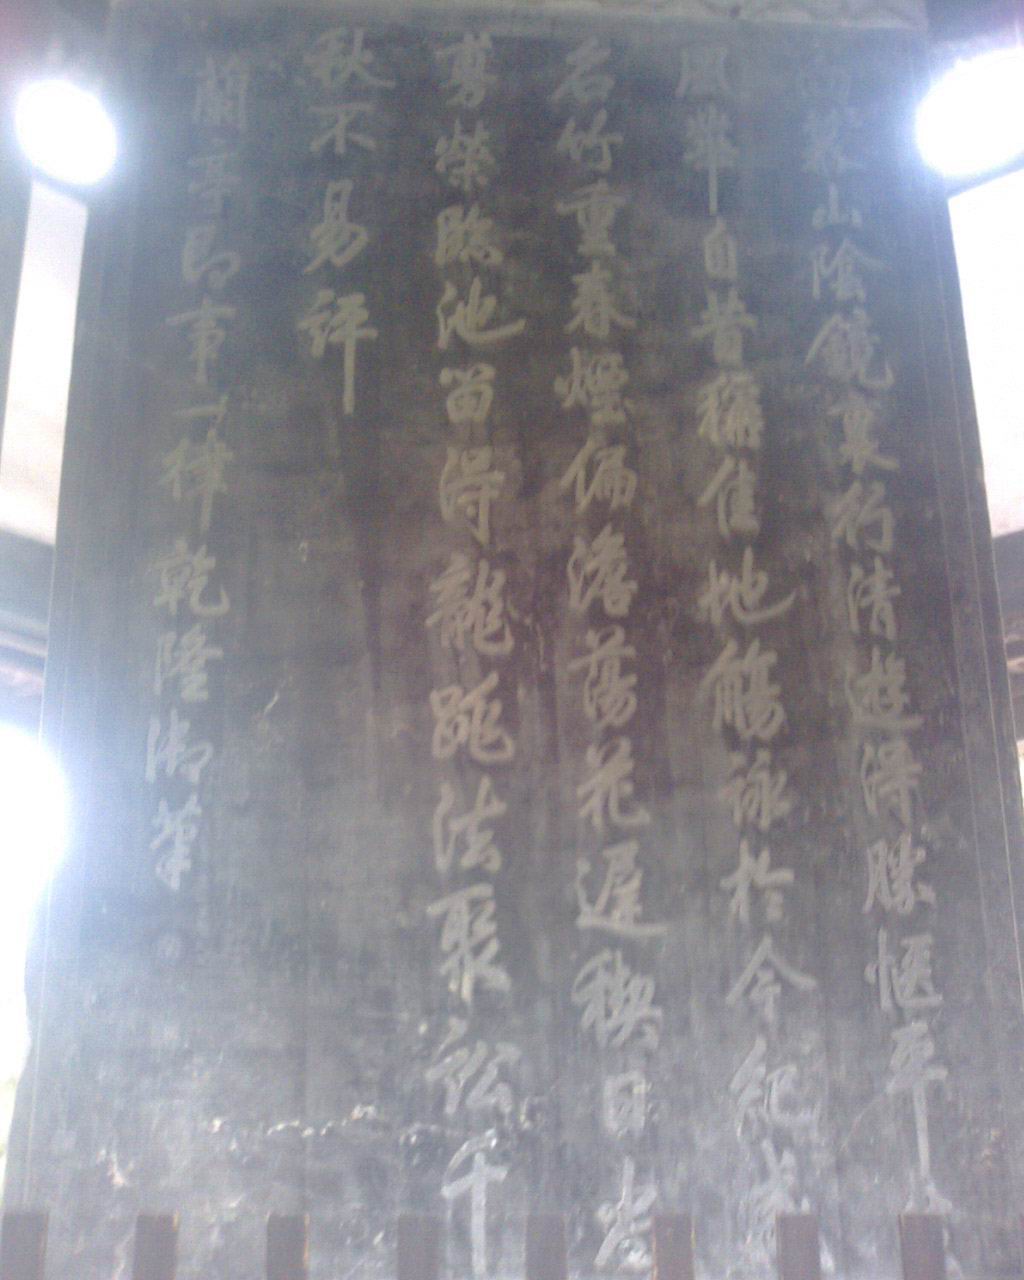 向慕山陰鏡裏行清遊得勝愜平
風華自昔稱佳地觴詠於今紀盛
名竹重春煙偏澹蕩花遲禊日尚
旉榮臨池留得龍跳法聚訟千
秋不易評
蘭亭即事一律乾隆御筆